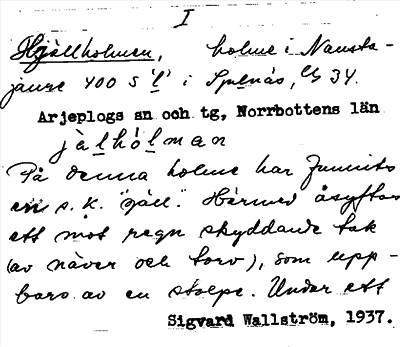 I
Hjällholmen, holme i Nausta-
jaure 400 S "l" i Spelnäs, 34.
Arjeplogs sn och tg, Norrbottens län
jàlhólman
På denna holme har funnits
en s. k. "jäll". Härmed åsyftas
ett mot regn skyddande tak
(av näver och torv), som upp-
bars av en stolpe. Under ett
Sigvard Wallström, 1937.